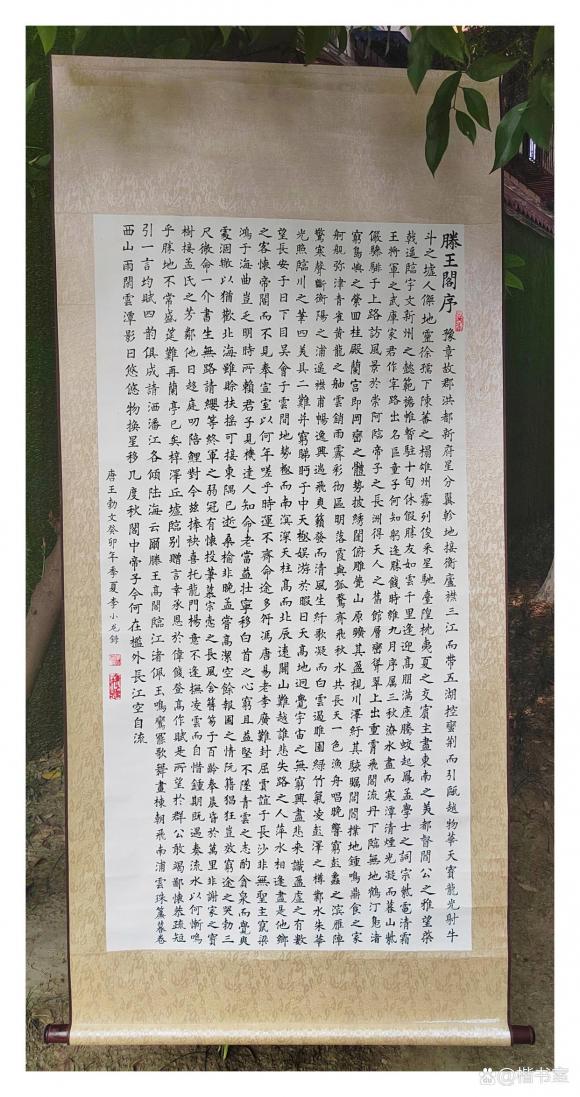 滕王閣序 豫章故郡洪都新府星分翼軫地接衡廬襟三江而帶五湖控蠻荊而引甌越物華天寶龍光射牛
斗之墟人傑地靈徐孺下陳蕃之榻雄州霧列俊采星馳臺隍枕夷夏之交賓主盡東南之美都督閻公之雅望棨
戟遥臨宇文新州之懿範襜帷暫駐十旬休假勝友如雲千里逢迎高朋滿座騰蛟起鳳孟學士之詞宗紫電清霜
王將軍之武庫家君作宰路出名區童子何知躬逢勝餞時維九月序属三秋潦水盡而寒潭清煙光凝而暮山紫
儼驂騑于上路訪風景於崇阿臨帝子之長洲得天人之舊館層巒聳翠上出重霄飛閣流丹下臨無地鶴汀鳧渚
窮島嶼之縈回桂殿蘭宫即岡巒之體勢披绣闥俯雕甍山原曠其盈視川澤紆其駭矚閭閻撲地鍾鳴鼎食之家
舸艦弥津青雀黄龍之舳雲銷雨霽彩彻區明落霞與孤鶩齊飛秋水共長天一色漁舟唱晚響窮彭蠡之滨雁陣
驚寒聲斷衡陽之浦遥襟甫暢逸興遄飛爽籟發而清風生纤歌凝而白雲遏睢園绿竹氣凌彭澤之樽鄴水朱華
光照臨川之筆四美具二難并窮睇眄于中天極娱游於暇日天高地迥覺宇宙之無窮興盡悲来識盈虚之有數
望長安于日下目吴會于雲間地勢極而南溟深天柱高而北辰遠關山難越誰悲失路之人萍水相逢盡是他鄉
之客懷帝閽而不見奉宣室以何年嗟乎時運不齊命途多舛馮唐易老李廣難封屈賈誼于長沙非無聖主竄梁
鴻于海曲豈乏明時所賴君子見機達人知命老當益壯寧移白首之心窮且益堅不墜青雲之志酌貪泉而覺爽
處涸辙以猶歡北海雖賒扶摇可接東隅已逝桑榆非晚孟嘗高潔空餘報國之情阮籍猖狂豈效窮途之哭勃三
尺微命一介書生無路請纓等终軍之弱冠有懷投筆慕宗慤之長風舍簪笏于百齡奉晨昏於萬里非謝家之寶
樹接孟氏之芳鄰他日趨庭叨陪鯉對今兹捧袂喜托龍門楊意不逢撫凌雲而自惜鍾期既遇奏流水以何慚嗚
乎勝地不常盛筵難再蘭亭已矣梓澤丘墟臨别贈言幸承恩於偉餞登高作賦是所望於群公敢竭鄙懷恭疏短
引一言均賦四韵俱成請洒潘江各傾陆海云爾滕王高閣臨江渚佩玉鳴鸞罷歌舞畫棟朝飛南浦雲珠簾暮卷
西山雨閑雲潭影日悠悠物换星移几度秋閣中帝子今何在檻外長江空自流
唐王勃文癸卯年季夏李小龙錄
楷书室